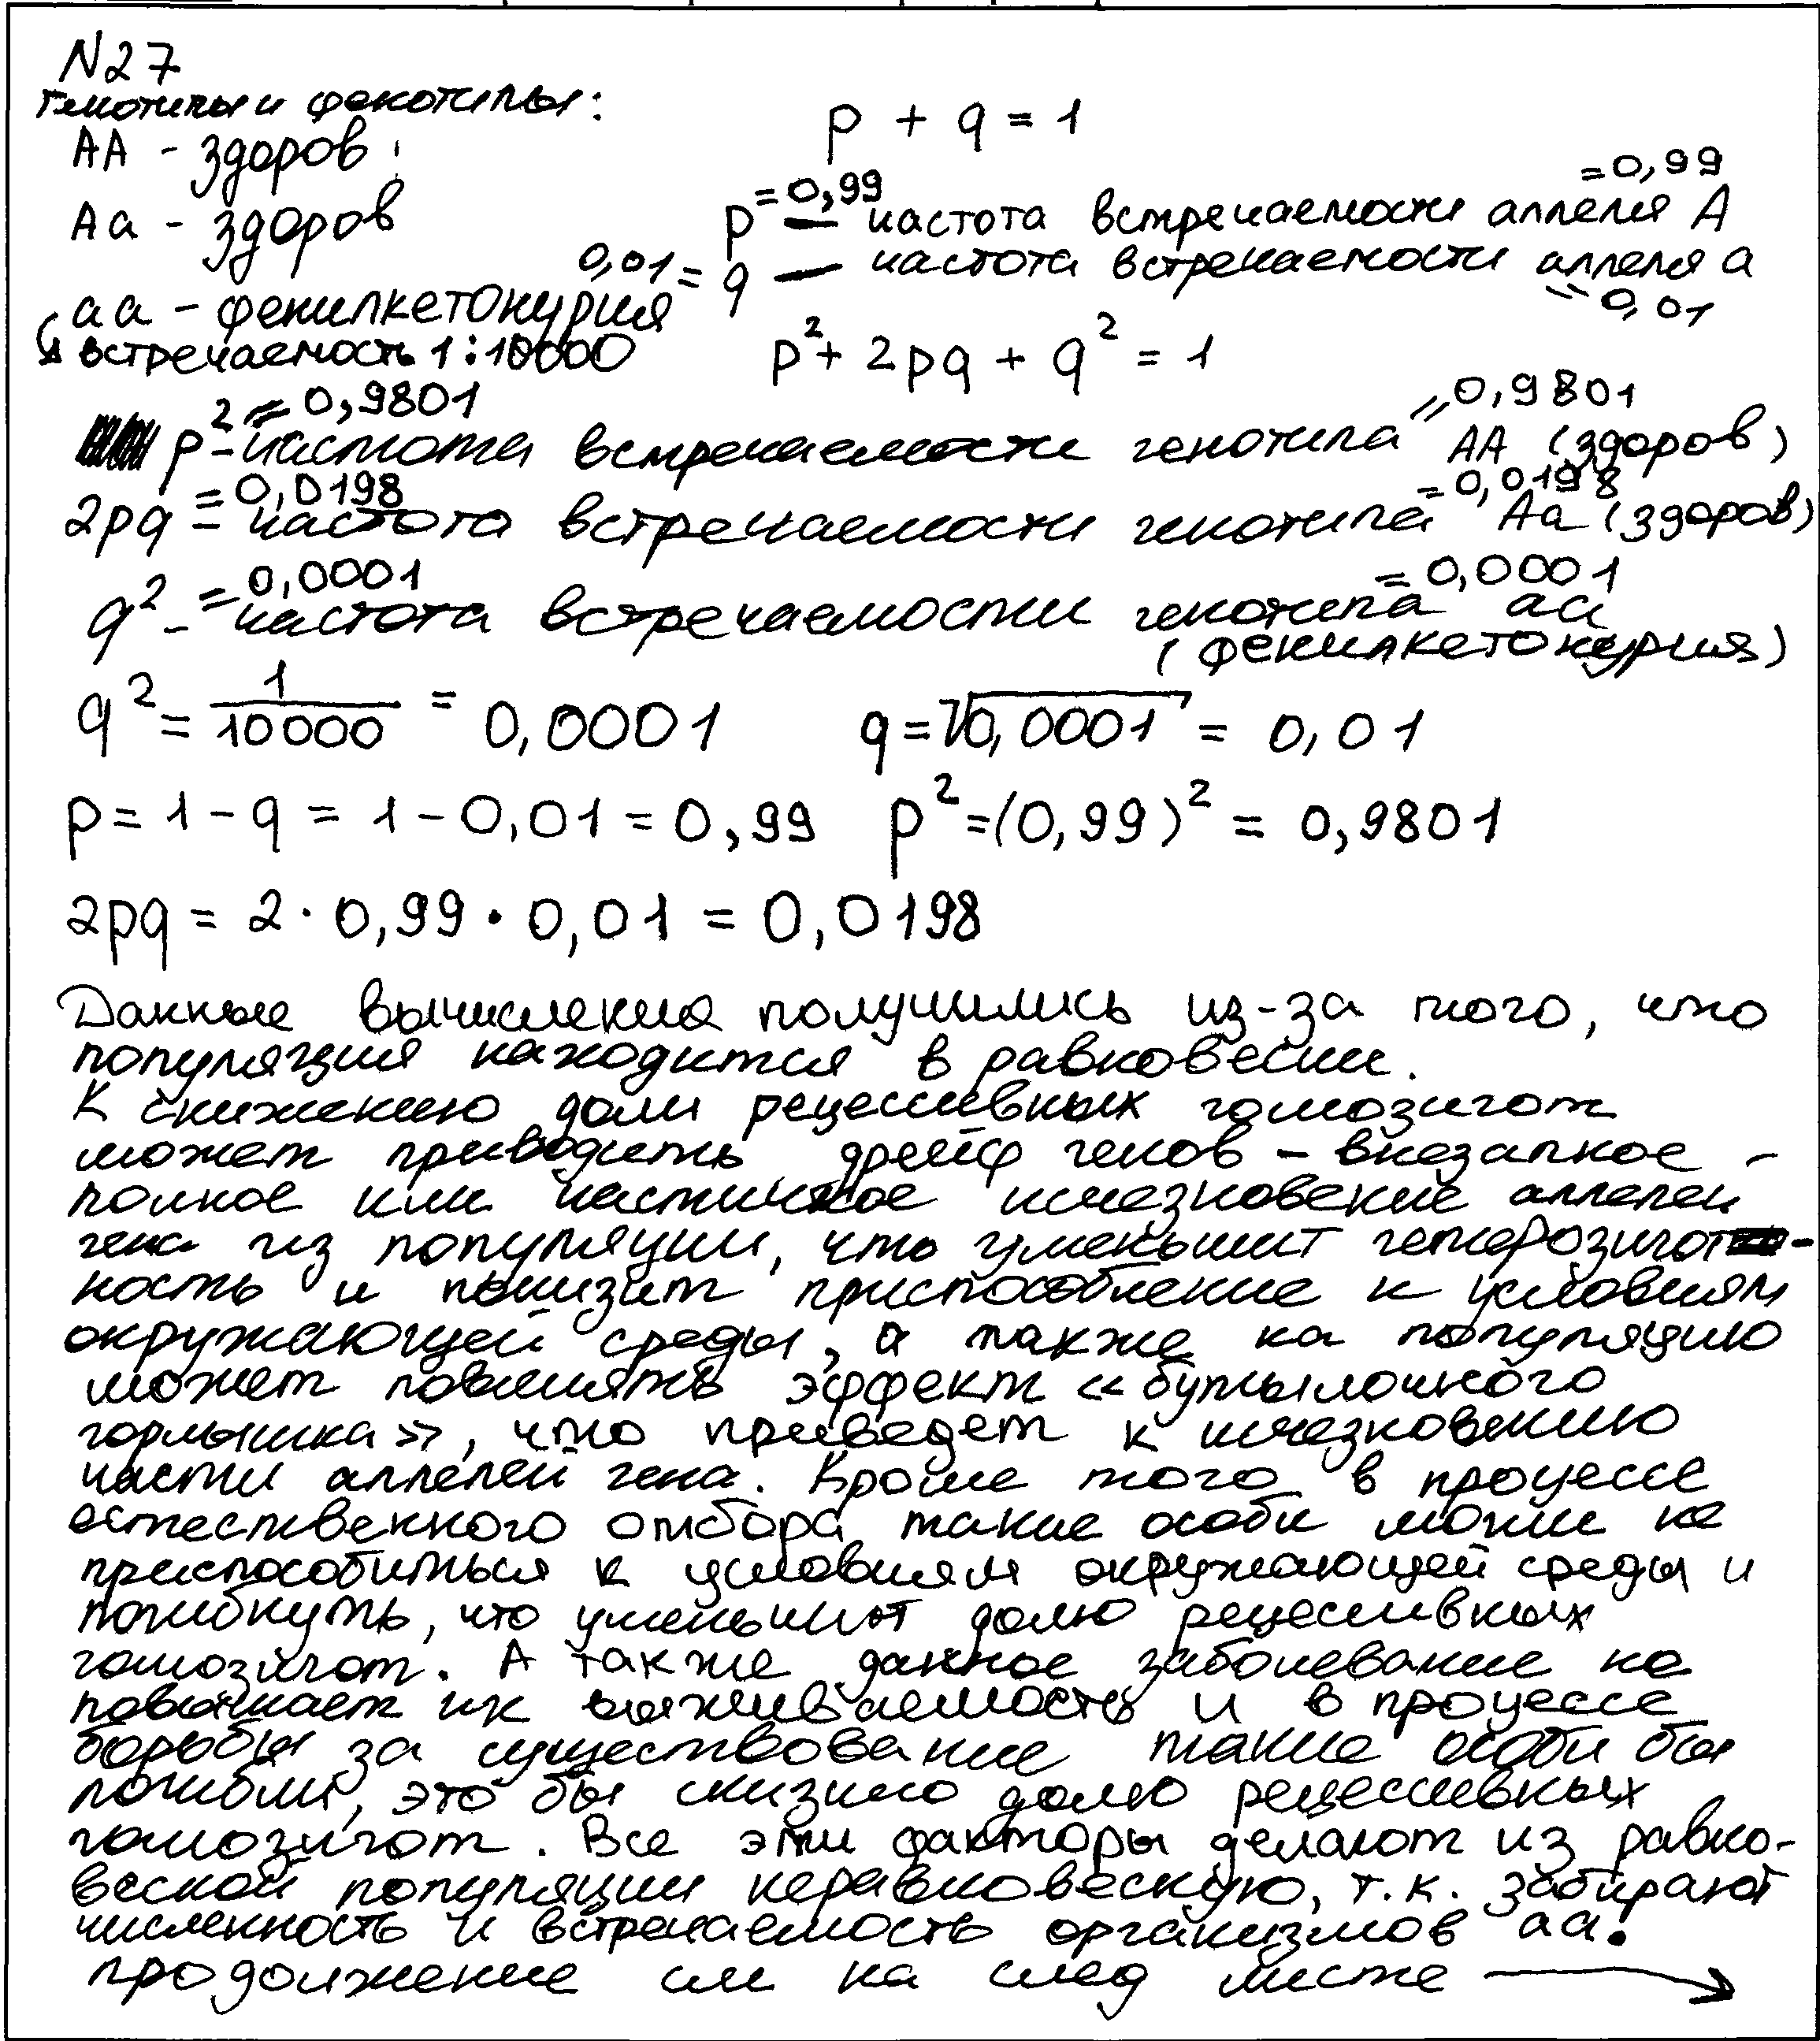 N27
Генотипы и фенотипы:
p + q = 1
AA - здоров
= 0,99
= 0,99
Aa - здоров
p — частота встречаемости аллеля A
0,01 = q — частота встречаемости аллеля a
= 0,01
aa - фенилкетонурия
↳ встречаемость 1:10000
p² + 2pq + q² = 1
= 0,9801
= 0,9801
p² - частота встречаемости генотипа AA (здоров)
= 0,0198
= 0,0198
2pq - частота встречаемости генотипа Aa (здоров)
= 0,0001
= 0,0001
q² - частота встречаемости генотипа aa
(фенилкетонурия)
q² = 1/10000 = 0,0001 q = √0,0001 = 0,01
p = 1 - q = 1 - 0,01 = 0,99 p² = (0,99)² = 0,9801
2pq = 2 · 0,99 · 0,01 = 0,0198
Данные вычисления получились из-за того, что
популяция находится в равновесии.
К снижению доли рецессивных гомозигот
может приводить дрейф генов - внезапное -
полное или частичное исчезновение аллелей
гена из популяции, что уменьшит гетерозигот-
ность и понизит приспособление к условиям
окружающей среды, а также на популяцию
может повлиять эффект «бутылочного
горлышка», что приведет к исчезновению
части аллелей гена. Кроме того в процессе
естественного отбора такие особи могли не
приспособиться к условиям окружающей среды и
погибнуть, что уменьшит долю рецессивных
гомозигот. А также данное заболевание не
повышает их выживаемость и в процессе
борьбы за существование такие особи бы
погибли, это бы снизило долю рецессивных
гомозигот. Все эти факторы делают из равно-
весной популяции неравновесную, т.к. забирают
численность и встречаемость организмов aa.
продолжение см на след листе →